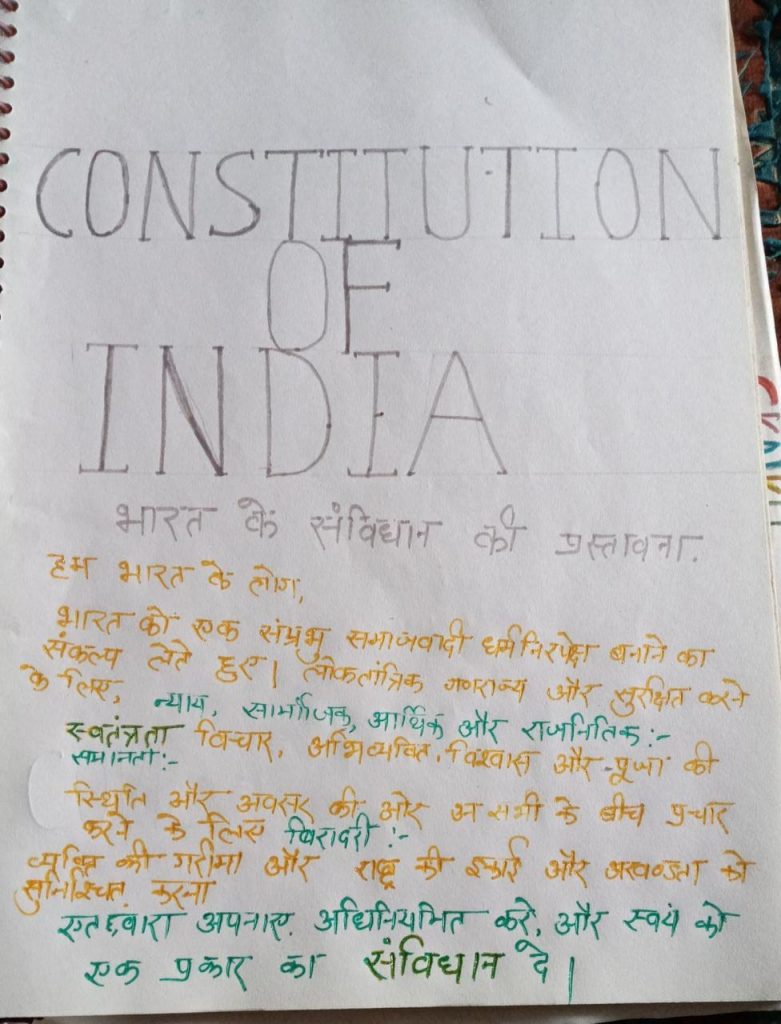 CONSTITUTION
OF
INDIA
भारत के संविधान की प्रस्तावना.
हम भारत के लोग,
भारत को एक संप्रभु समाजवादी धर्मनिरपेक्ष बनाने का
संकल्प लेते हुए। लोकतांत्रिक गणराज्य और सुरक्षित करने
के लिए, न्याय, सामाजिक, आर्थिक और राजनितिक:-
स्वतंत्रता विचार, अभिव्यक्ति, विश्वास और पूजा की
समानता:-
स्थिति और अवसर की ओर अ सभी के बीच प्रचार
करने के लिए बिरादरी:-
व्यक्ति की गरीमा और राष्ट्र की इकाई और अखण्डता को
सुनिश्चित करना
एतद्द्वारा अपनाए, अधिनियमित करे, और स्वयं को
एक प्रकार का संविधान दे।